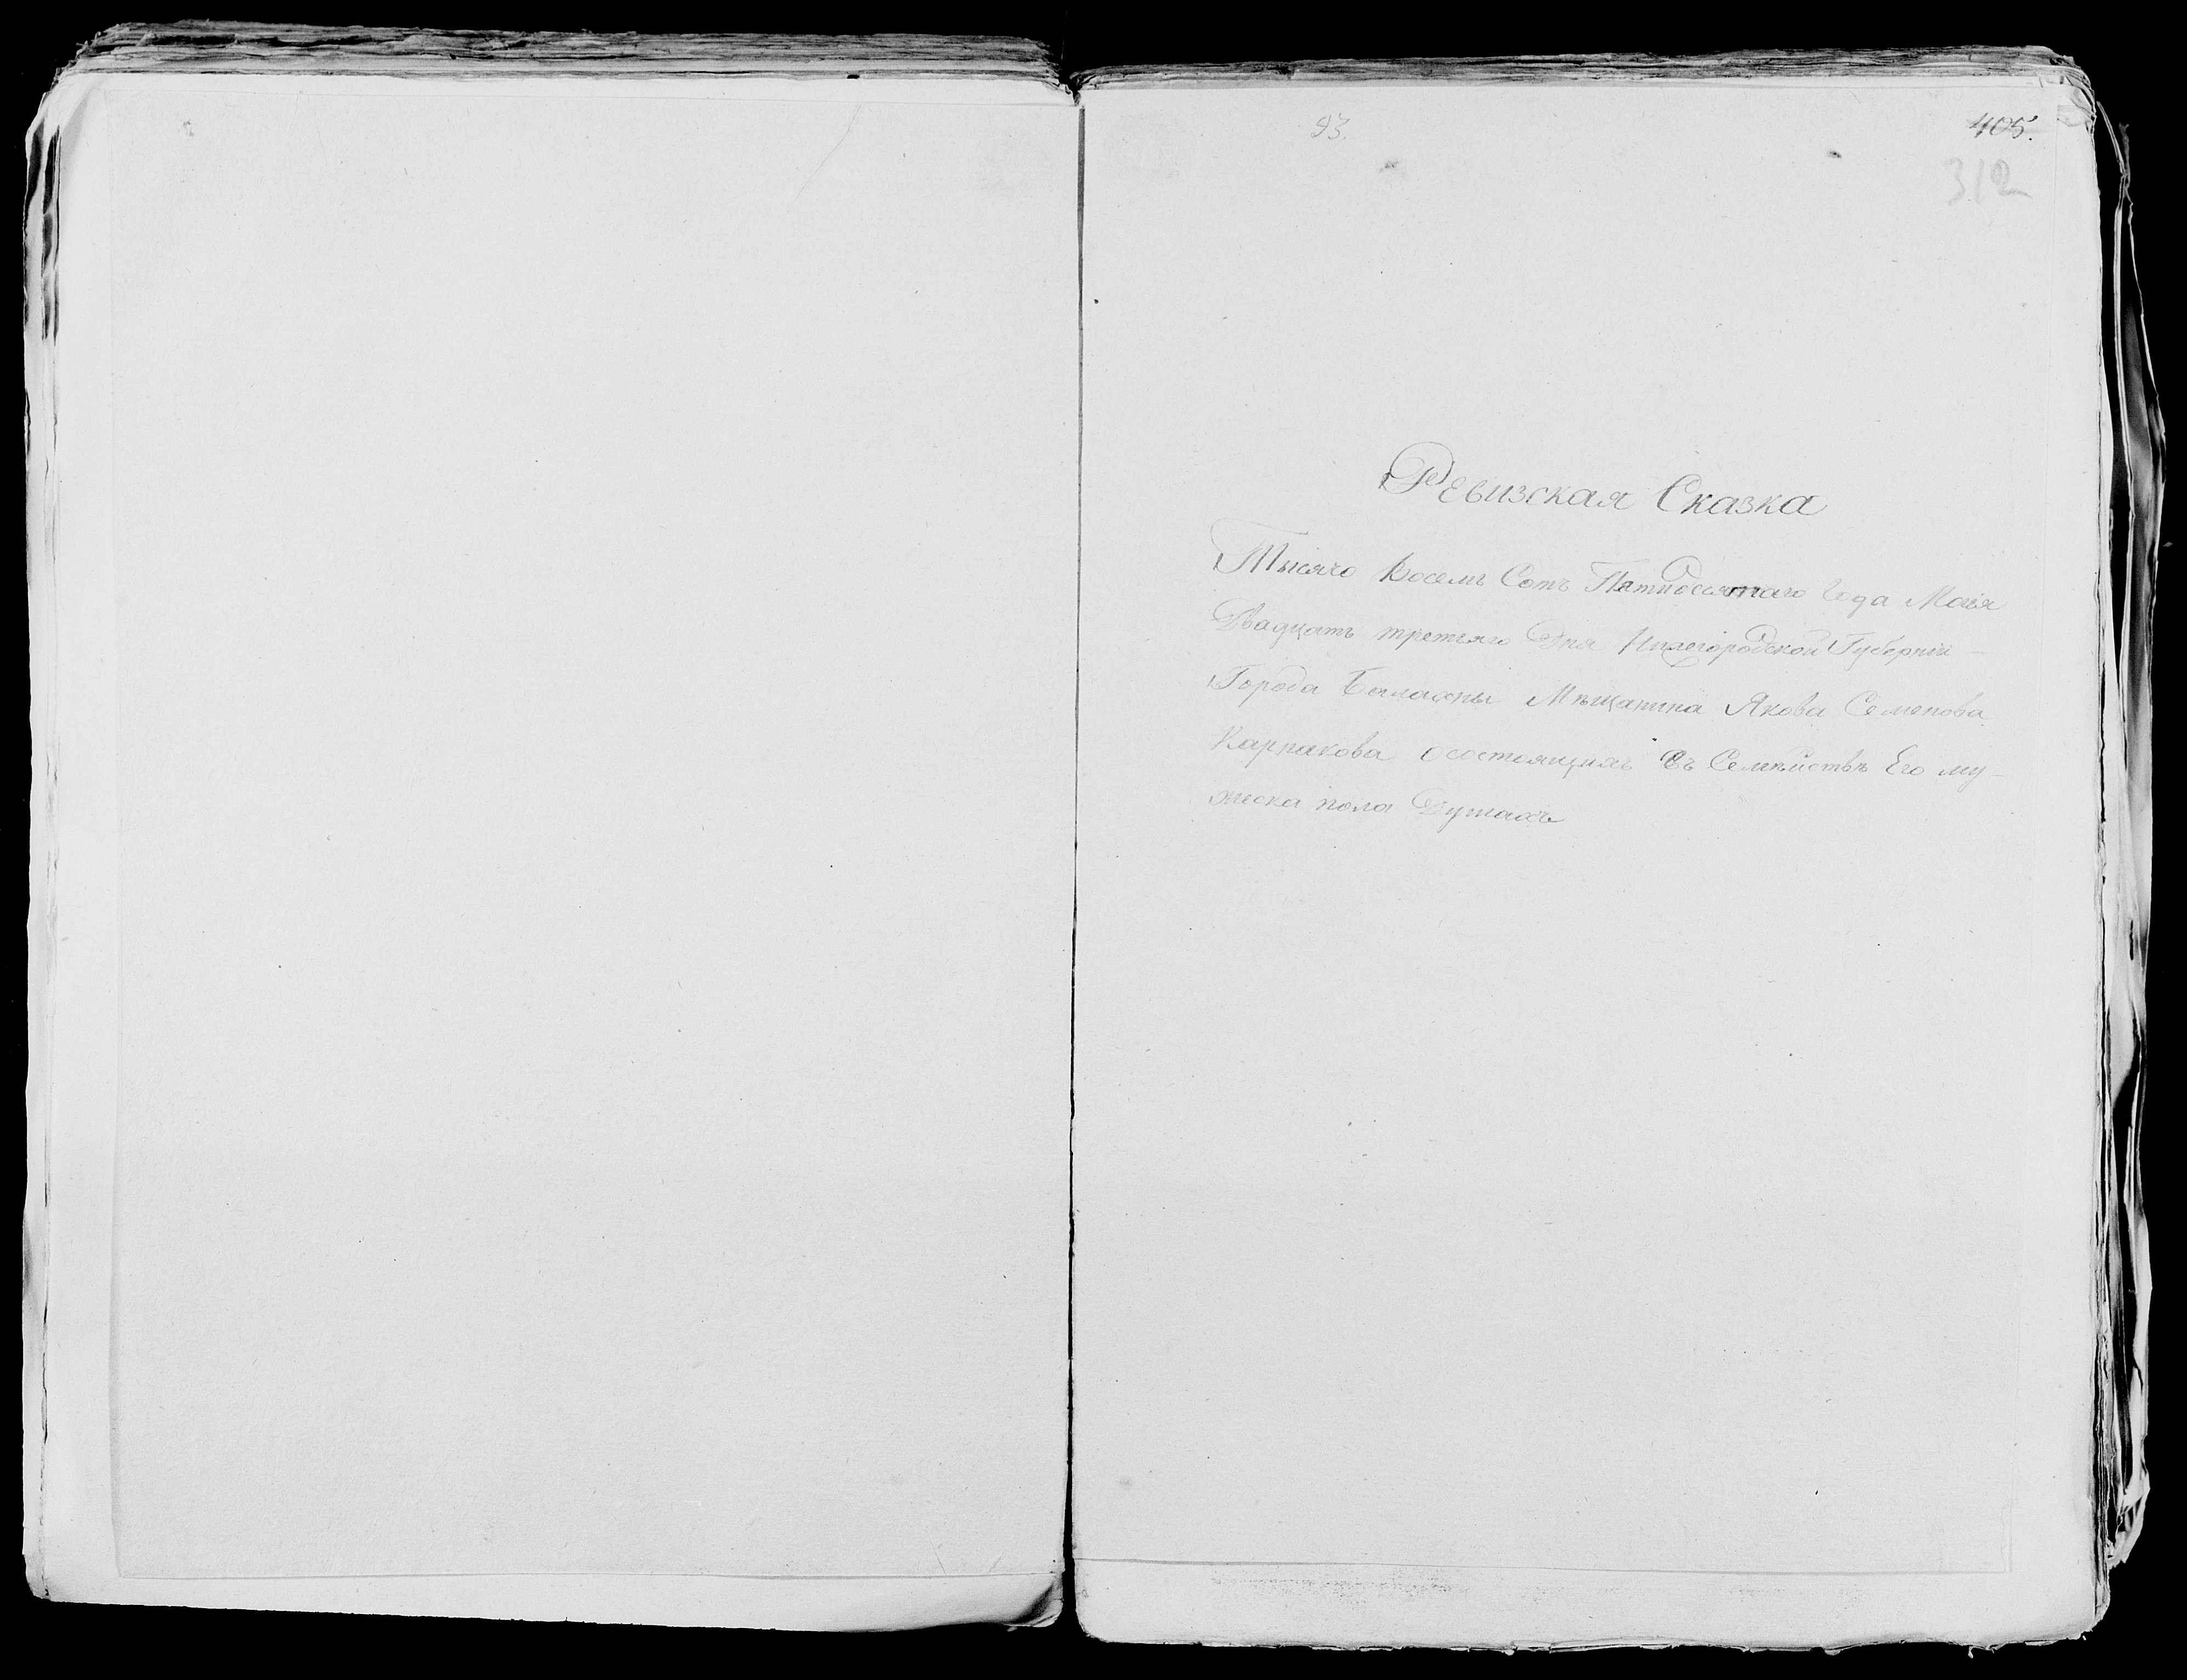 93.
405.
312
Ревизская Сказка
Тысячо Восемь Сотъ Пятидесятаго Года Маія
Двадцать третьяго Дня Нижегородской Губерніи
Города Балахны Мѣщанина Якова Семенова
Карпакова о состоящихъ въ Семѣйствѣ Его му-
жеска пола Душахъ